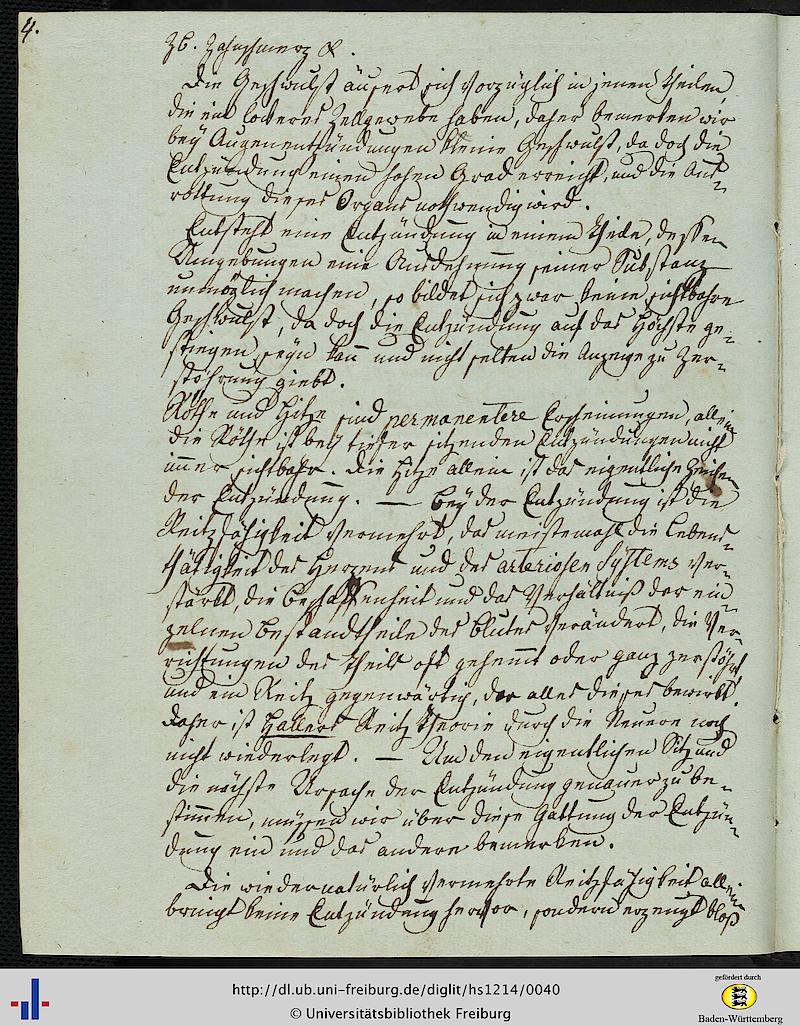 4.
Zb. Zahnschmerz &.
Die Geschwulst äusert sich vorzüglich in jenen Theilen,
die ein lockeres Zellgewebe haben, daher bemerken wir
bey Augenentzündungen kleine Geschwulst, da doch die
Entzündung einen hohen Grad erreicht, und die Aus-
rottung dieses Organs nothwendig wird.
Entsteht eine Entzündung in einem Theile, dessen
Umgebungen eine Ausdehnung seiner Substanz
unmöglich machen, so bildet sich zwar keine sichtbahre
Geschwulst, da doch die Entzündung auf das Höchste ge-
stiegen seyn kann und nicht selten die Anzeige zu Zer-
stöhrung giebt.
Röthe und Hitze sind permanentere Erscheinungen, allein
die Röthe ist bey tiefer sitzenden Entzündungen nicht
immer sichtbahr. Die Hitze allein ist das eigentliche Zeichen
der Entzündung. — Bey der Entzündung ist die
Reitzfähigkeit vermehrt, das meistemahl die Lebens-
thätigkeit des Herzens und des arteriosen Systems ver-
stärkt, die Beschaffenheit und das Verhältniß der ein-
zelnen Bestandtheile des Blutes verändert, die Ver-
richtungen des Theils oft gehemmt oder ganz zerstöhrt
und ein Reitz gegenwärtig, der alles dieses bewirkt.
Daher ist Hallers Reitz Theorie durch die Neuern noch
nicht wiederlegt. — Um den eigentlichen Sitz und
die nächste Ursache der Entzündung genauer zu be-
stimmen, müssen wir über diese Gattung der Entzün-
dung ein und das andere bemerken.
Die wiedernatürlich vermehrte Reitzfähigkeit allein
bringt keine Entzündung hervor, sondern erzeugt bloß
http://dl.ub.uni-freiburg.de/diglit/hs1214/0040
© Universitätsbibliothek Freiburg
gefördert durch
Baden-Württemberg